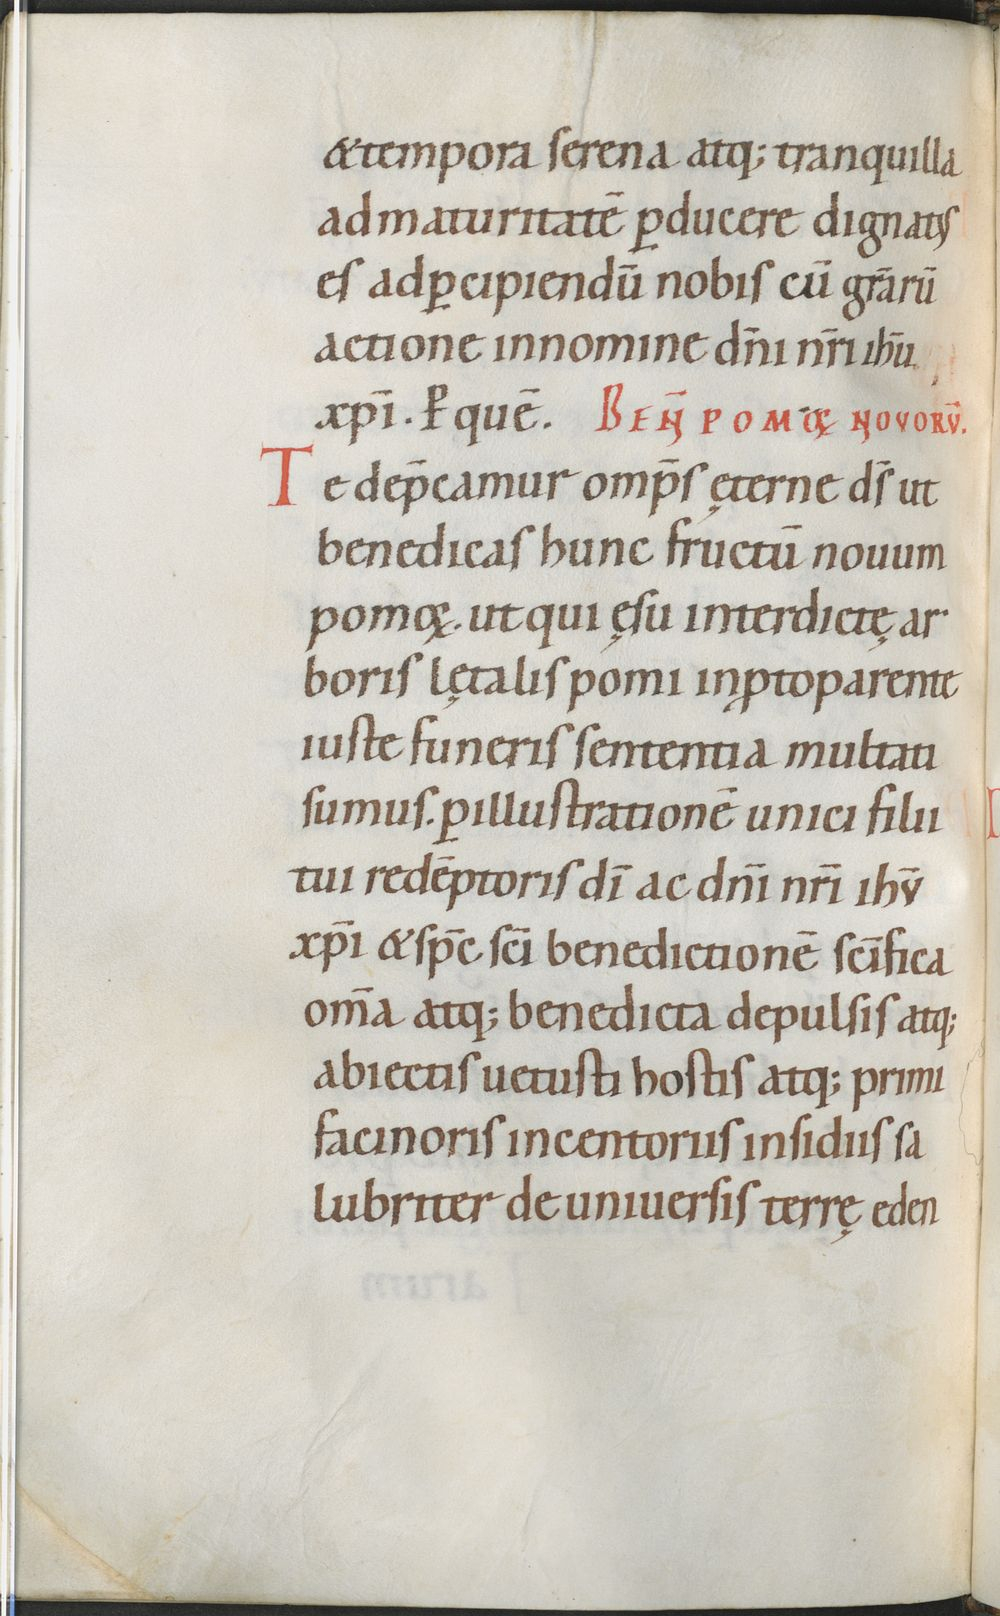 &tempora serena atq; tranquilla
admaturitatē ꝑducere dignatꝰ
es adꝑcipiendū nobis cū gr̄arū
actione innomine dn̄i nr̄i ihu̅
xp̄i. ꝑ quē. BEN̄ POMOꝜ NOVORV̄.
Te dep̄camur omp̄s ęterne ds̄ ut
benedicas hunc fructū nouum
pomoꝝ. ut qui ęsu interdictę ar
boris lętalis pomi inꝓtoparente
iuste funeris sententia multati
sumus. ꝑillustrationē unici filii
tui redēptoris dī ac dn̄i nr̄i ihv̄
xp̄i & sp̄c sc̄i benedictionē sc̄ifica
om̄a atq; benedicta depulsis atq;
abiectis uetusti hostis atq; primi
facinoris incentorus insidiis sa
lubriter de uniuersis terrę eden